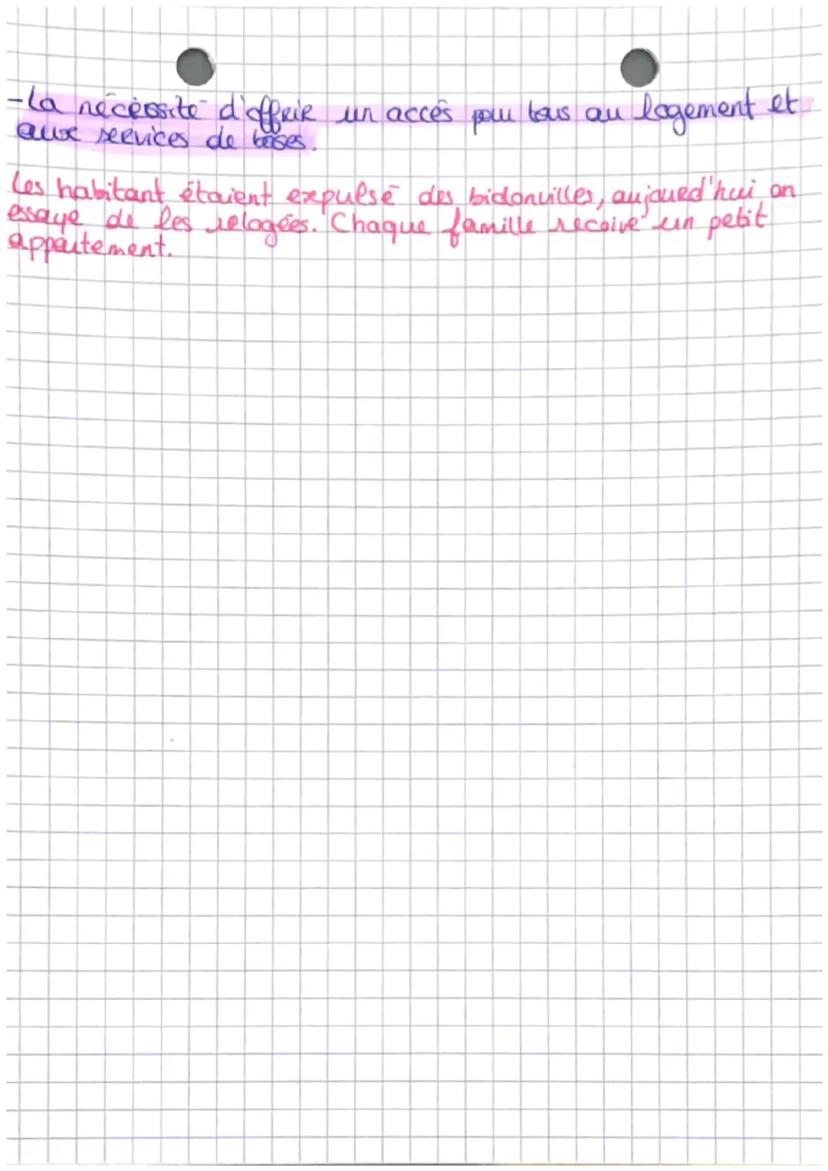 -La nécéssité d'offrir un accés pour tous au logement et
aux services de bases.
Les habitant étaient expulsé des bidonvilles, aujourd'hui on
essaye de les relogées. Chaque famille recoive un petit
appartement.